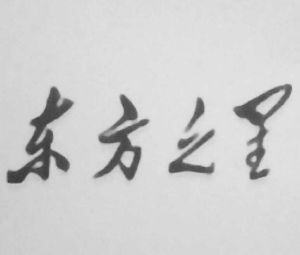 东方之星